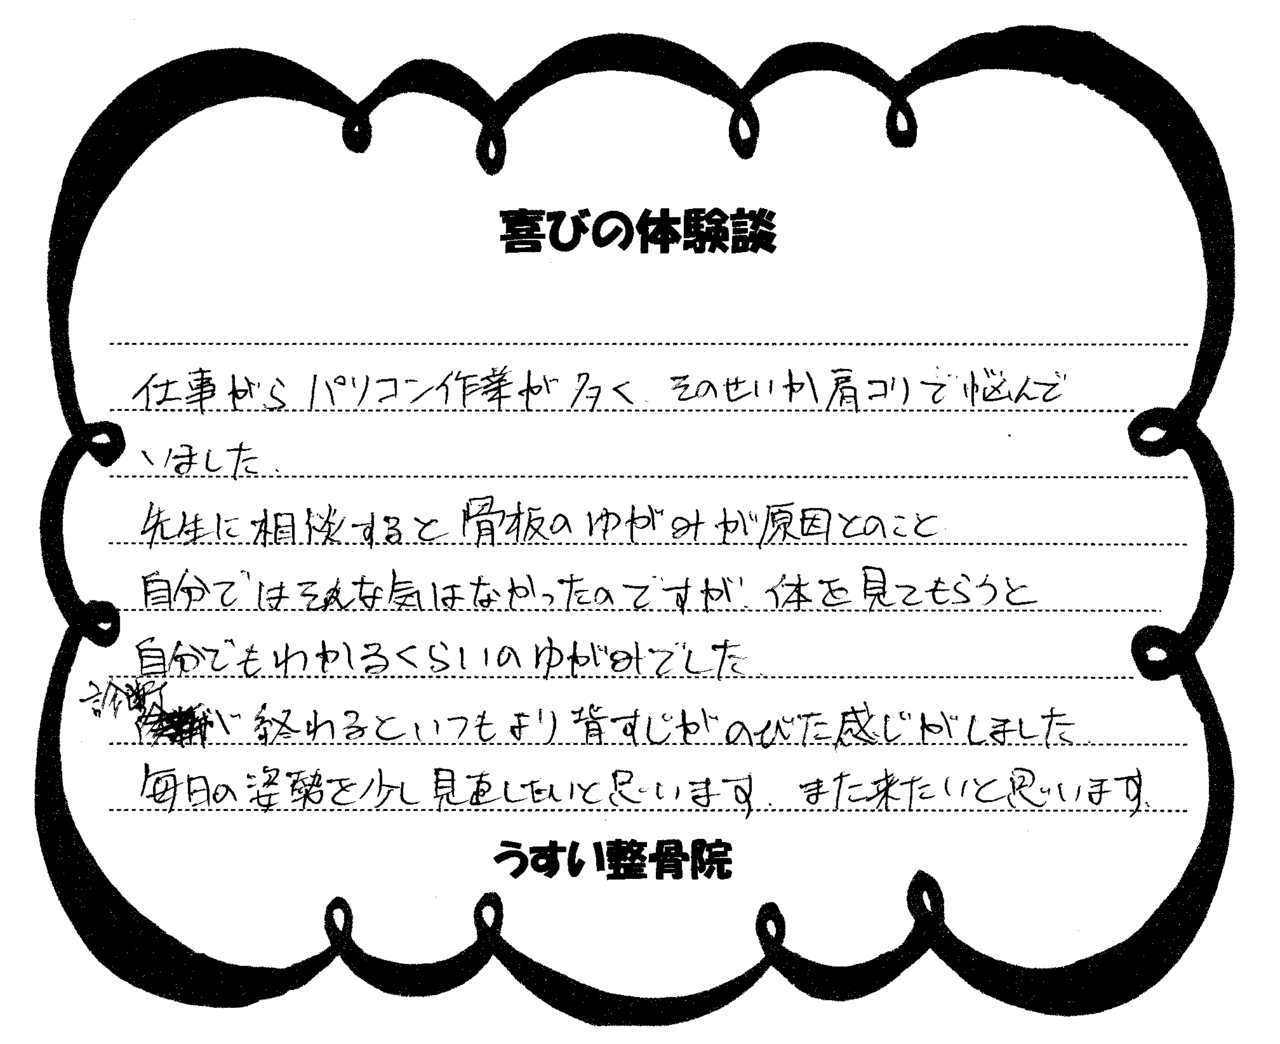 喜びの体験談
仕事がらパソコン作業が多く、そのせいか肩コリで悩んで
いました。
先生に相談すると骨板のゆがみが原因とのこと
自分ではそんな気はなかったのですが、体を見てもらうと
自分でもわかるくらいのゆがみでした。
診断が終わるといつもより背すじがのびた感じがしました。
毎日の姿勢を少し見直したいと思います。また来たいと思います。
うすい整骨院